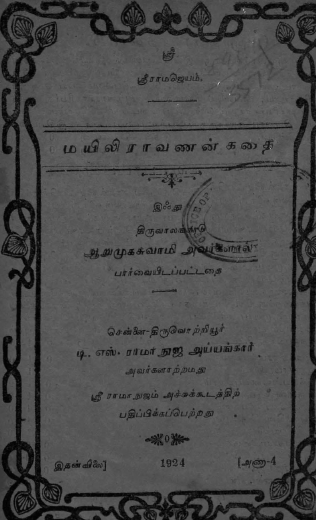 ஸ்ரீ
ஸ்ரீராமஜெயம்.
மயிலிராவணன் கதை
இஃது
ஆறுமுகசுவாமி அவர்களால்
பார்வையிடப்பட்டதை
சென்னை-திருவொற்றியூர்
டி. எஸ். ராமாநுஜ அய்யங்கார்
அவர்களாற்றமது
ஸ்ரீ ராமாநுஜம் அச்சுக்கூடத்திற்
பதிப்பிக்கப்பெற்றது
இதன்விலை] 1924 [அணா-4